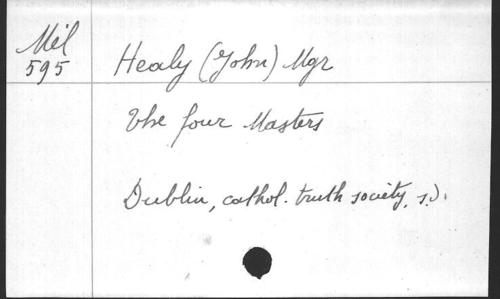 Mél
595
Healy (John) Mgr
The four Masters
Dublin, cathol. truth society, s.d.